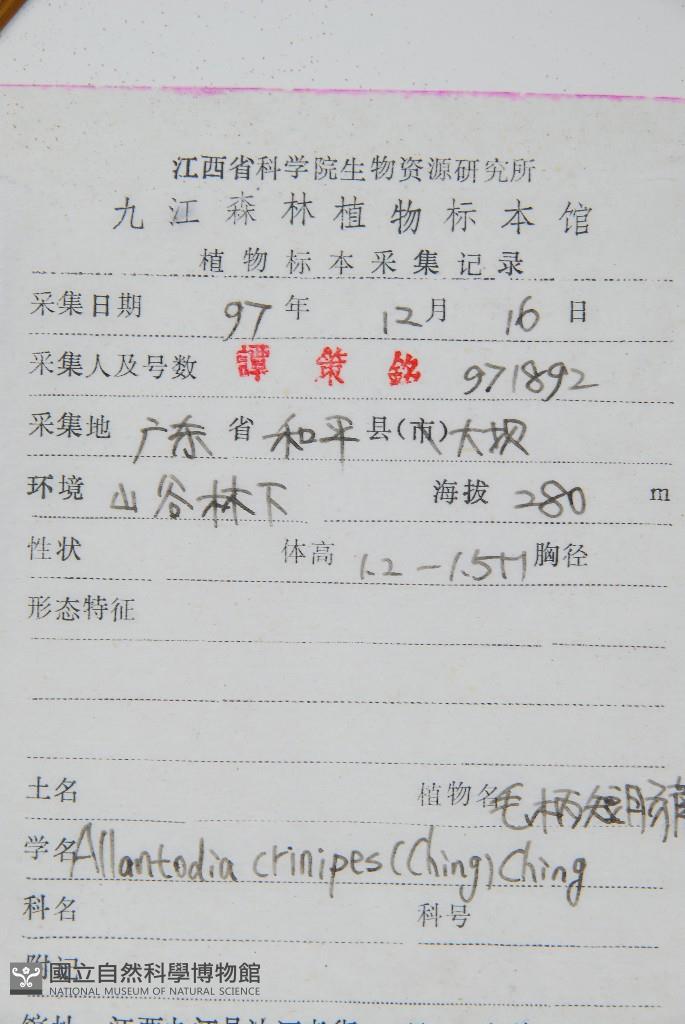 江西省科学院生物资源研究所
九江森林植物标本馆
植物标本采集记录
采集日期 97年 12月 16日
采集人及号数 譚策銘 971892
采集地 广东省 和平县(市)大坝
环境 山谷林下 海拔 280 m
性状 体高 1.2-1.5m 胸径
形态特征
土名 植物名 毛柄短肠蕨
学名 Allantodia crinipes (Ching) Ching
科名 科号
附记
國立自然科學博物館
NATIONAL MUSEUM OF NATURAL SCIENCE
馆址 江西九江县沙河